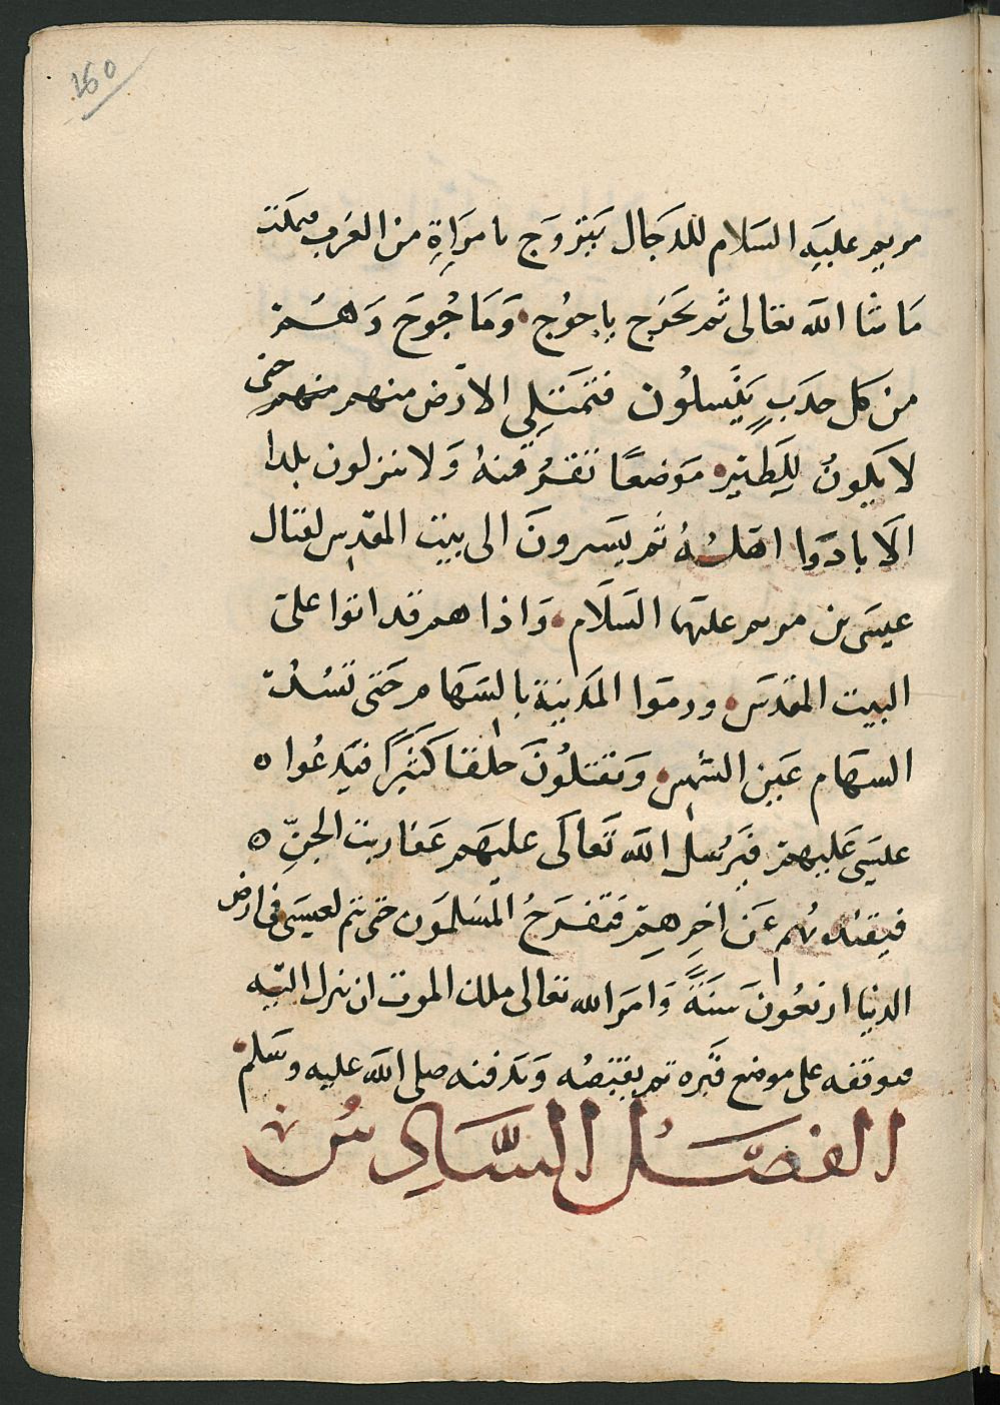 160
مريم عليه السلام للدجال يتزوج بامراة من العرب فيمكث
ما شا الله تعالى ثم يخرج ياجوج وماجوج وهم
من كل حدب ينسلون فتمتلي الارض منهم منهم حتى
لا يكون للطير موضعا تفر منه ولا ينزلون بلدا
الا بادوا اهله ثم يسيرون الى بيت المقدس لقتال
عيسى بن مريم عليهما السلام واذا هم قد اتوا على
البيت المقدس ورموا المدينة بالسهام حتى تسد
السهام عين الشمس ويقتلون خلقا كثيرا فيدعوا ه
عيسى عليهم فيرسل الله تعالى عليهم عفاريت الجن ه
فيقتلوهم عن اخرهم فتفرح المسلمون حتى يتم لعيسى في ارض
الدنيا اربعون سنة وامر الله تعالى ملك الموت ان ينزل اليه
فيوقفه على موضع قبره ثم يقبضه ويدفنه صلى الله عليه وسلم
الفصل السادس